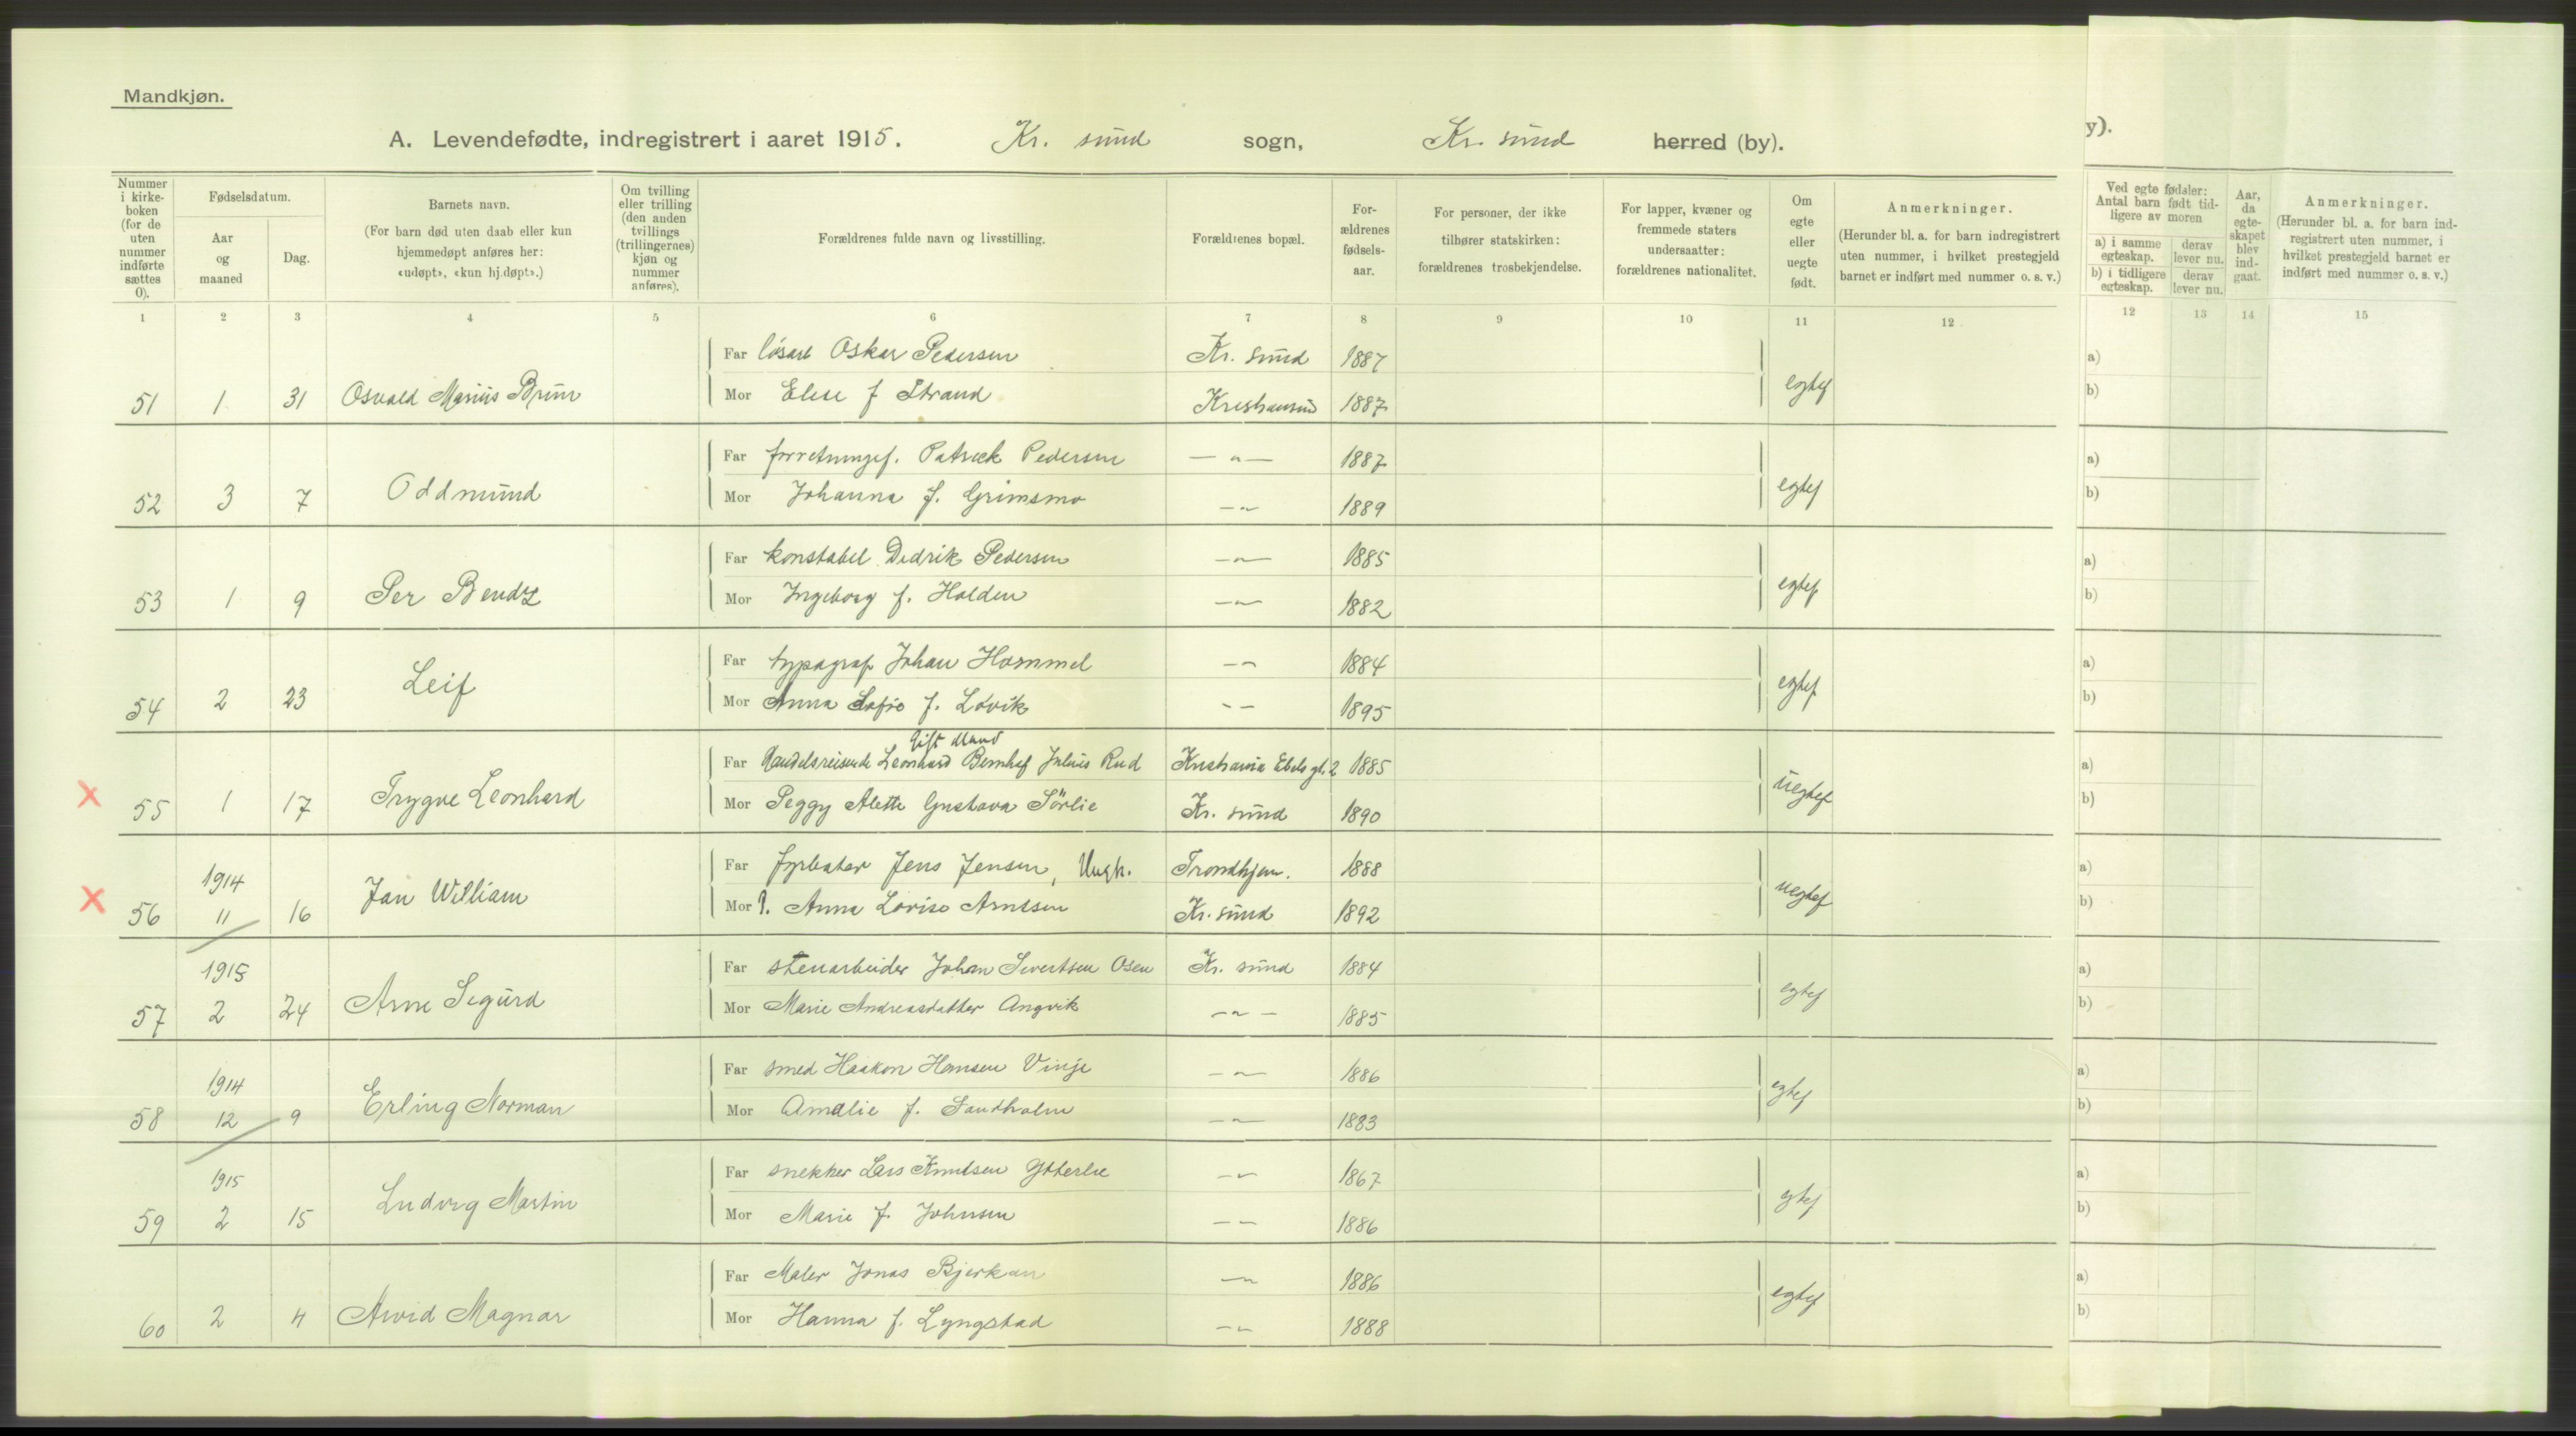 Mandkjøn.
A. Levendefødte, indregistrert i aaret 1915. Kr. sund sogn, Kr. sund herred (by).
y).
Nummer i kirkeboken (for de uten nummer indførte sættes 0).
Fødselsdatum.
Aar og maaned
Dag.
Barnets navn.
(For barn død uten daab eller kun hjemmedøpt anføres her: «udøpt», «kun hj.døpt».)
Om tvilling eller trilling (den anden tvillings (trillingernes) kjøn og nummer anføres).
Forældrenes fulde navn og livsstilling.
Forældrenes bopæl.
Forældrenes fødselsaar.
For personer, der ikke tilhører statskirken: forældrenes trosbekjendelse.
For lapper, kvæner og fremmede staters undersaatter: forældrenes nationalitet.
Om egte eller uegte født.
Anmerkninger.
(Herunder bl. a. for barn indregistrert uten nummer, i hvilket prestegjeld barnet er indført med nummer o. s. v.)
Ved egte fødsler: Antal barn født tidligere av moren
a) i samme egteskap.
derav lever nu.
b) i tidligere egteskap.
derav lever nu.
Aar, da egteskapet blev indgaat.
Anmerkninger.
(Herunder bl. a. for barn indregistrert uten nummer, i hvilket prestegjeld barnet er indført med nummer o. s. v.)
1 2 3 4 5 6 7 8 9 10 11 12 12 13 14 15
Far løsarb Oskar Pedersen Kr. sund 1887 a)
51 1 31 Osvald Marius Brun Mor Elise f Strand Kristiansund 1887 egtef b)
Far forretningsf. Patrick Pedersen — " — 1887 a)
52 3 7 Oddmund Mor Johanna f. Grimsmo — " 1889 egtef b)
Far konstabel Didrik Pedersen — " — 1885 a)
53 1 9 Per Bendz Mor Ingeborg f. Halden — " — 1882 egtef b)
Far typograf Johan Hammel — " 1884 a)
54 2 23 Leif Mor Anna Sofie f. Løvik — — 1895 egtef b)
Gift Mand
Far Handelsreisende Leonhard Bernhof Julius Rud Kristiania 2 1885 a)
x 55 1 17 Trygve Leonhard Mor Peggy Alette Gustava Sörlie Kr. sund 1890 uegtef b)
Far fyrbøter Jens Jensen, Ungk. Trondhjem. 1888 a)
x 56 1914 11 16 Jan William Mor P. Anna Lovise Arntsen Kr. sund 1892 uegtef b)
Far stenarbeider Johan Sivertsen Osen Kr. sund 1884 a)
57 1915 2 24 Arne Sigurd Mor Marie Andreasdatter Angvik — " — 1885 egtef b)
Far smed Haakon Hansen Vinje — " — 1886 a)
58 1914 12 9 Erling Norman Mor Amalie f. Sandholm — " — 1883 egtef b)
Far snekker Lars Knutsen Ytterlie — " 1867 a)
59 1915 2 15 Ludvig Martin Mor Marie f. Johnsen — — 1886 egtef b)
Far Maler Jonas Bjerkan — " 1886 a)
60 2 4 Arvid Magnar Mor Hanna f. Lyngstad — " 1888 egtef b)